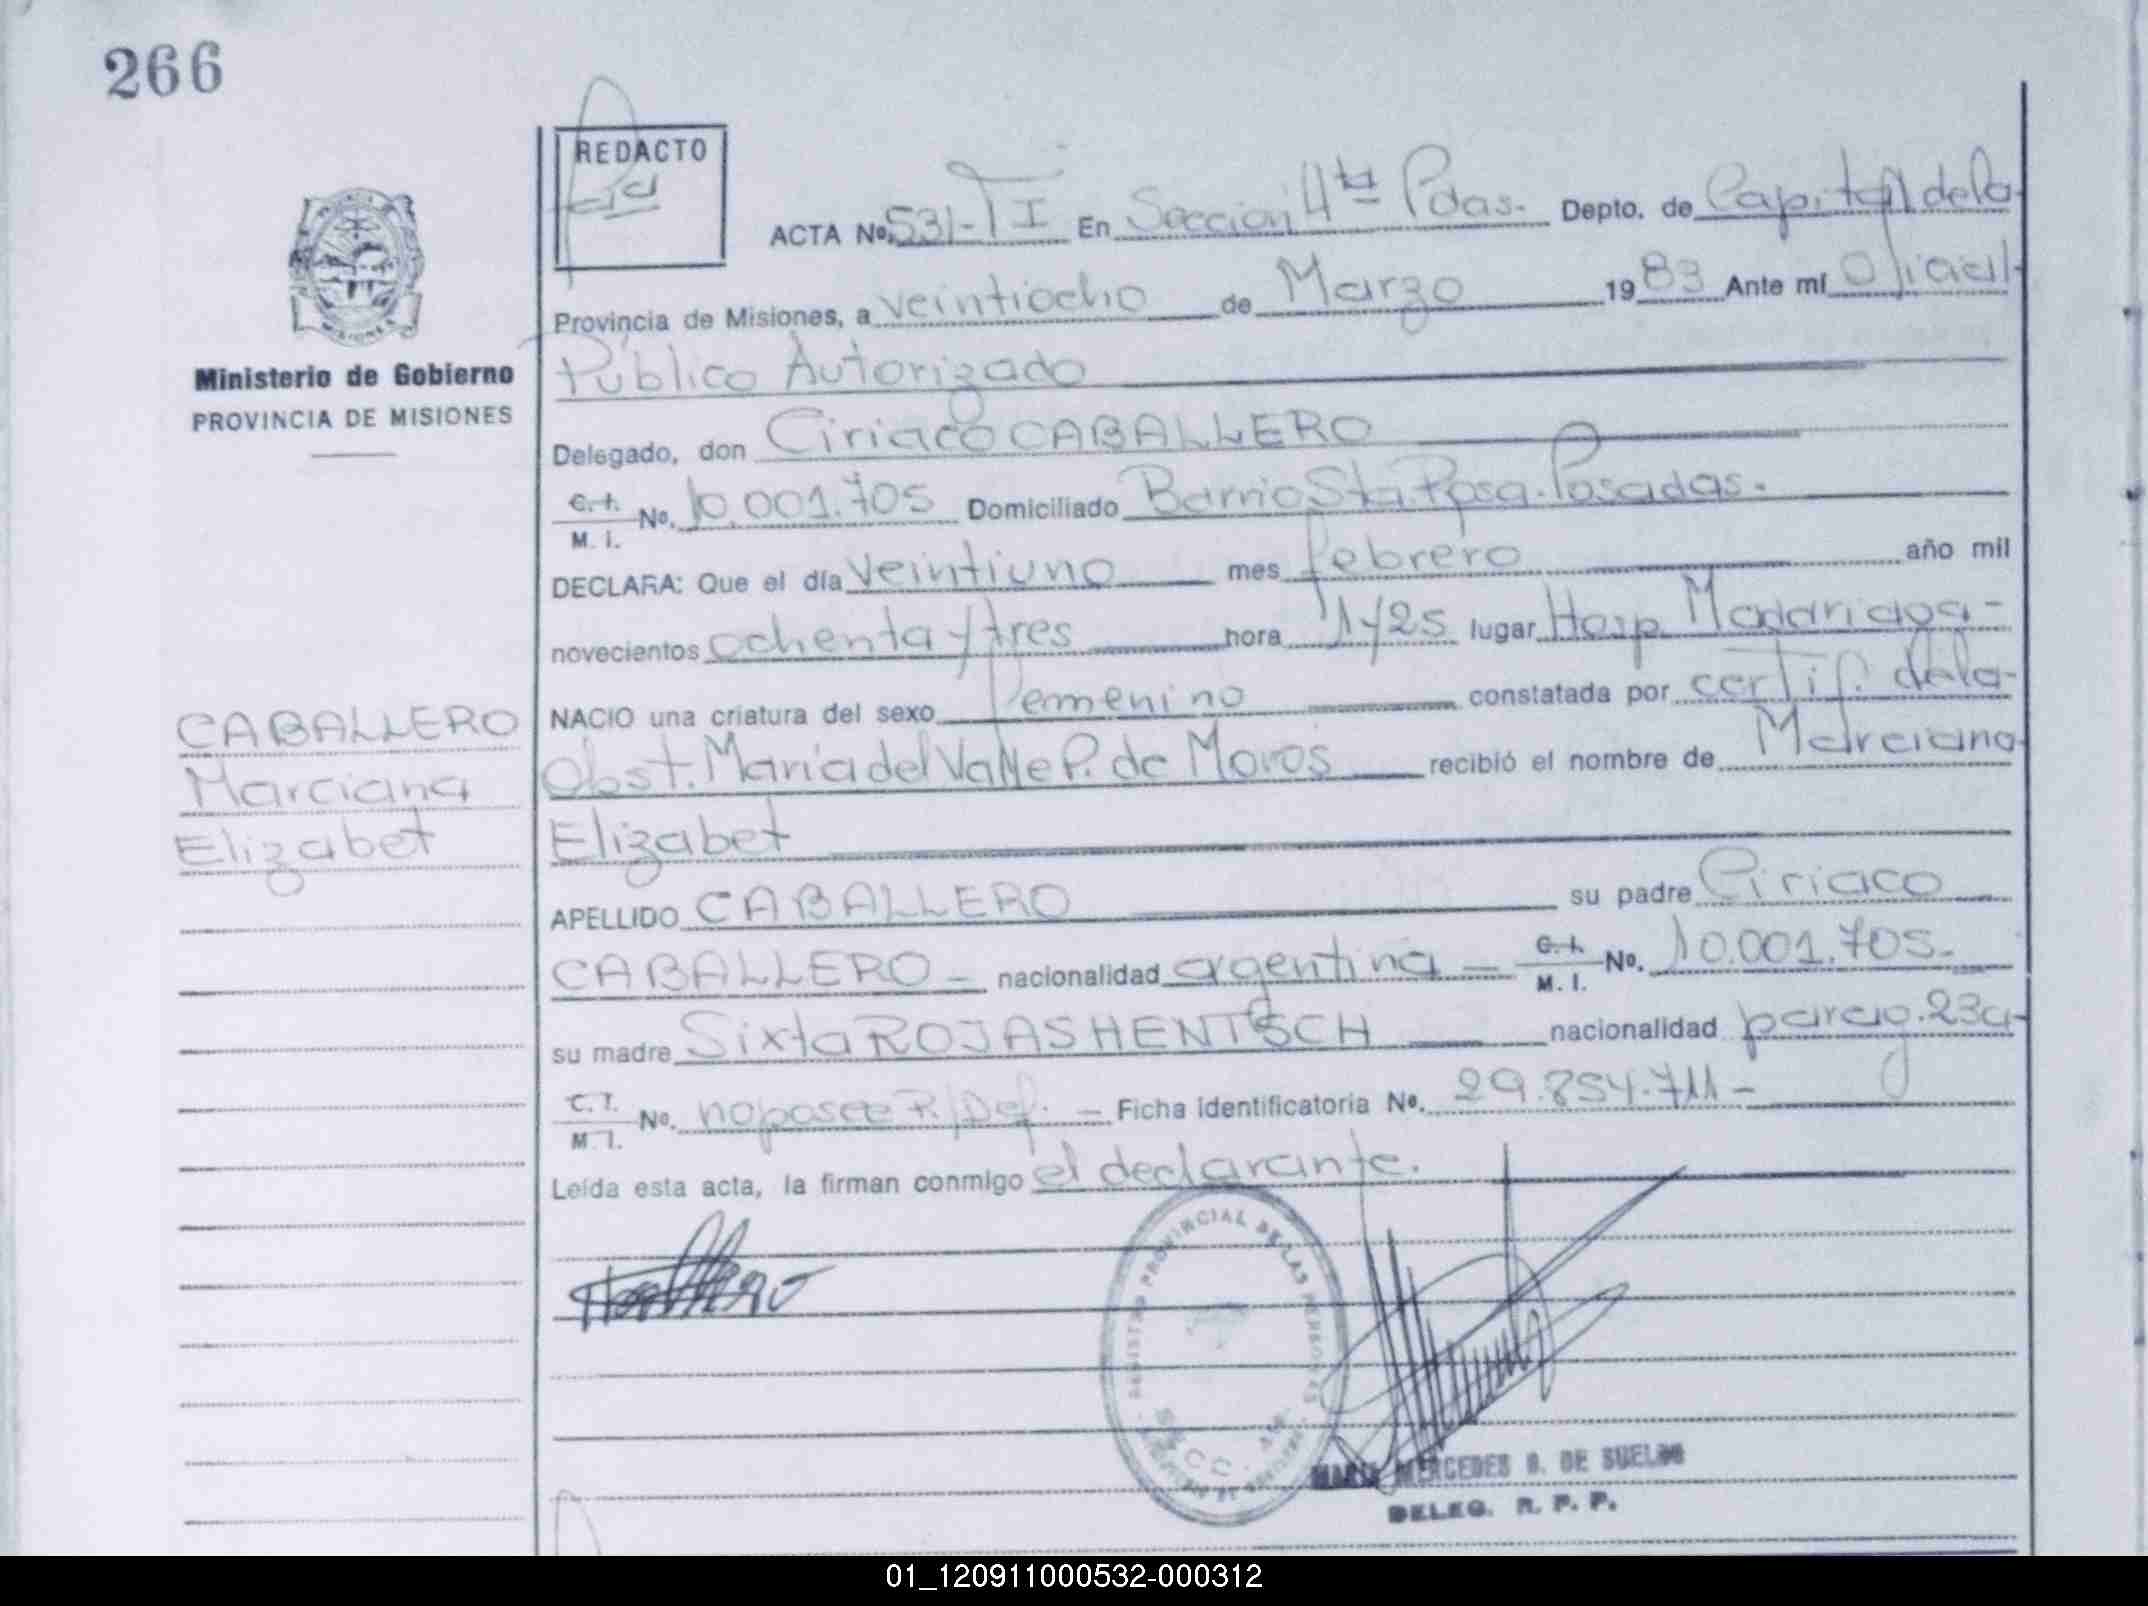 266
REDACTO
ACTA Nº 531-TI En Sección 4ta Pdas. Depto. de Capital de la
Provincia de Misiones, a veintiocho de Marzo 1983 Ante mí Oficial
Público Autorizado
Ministerio de Gobierno
PROVINCIA DE MISIONES
Delegado, don Ciriaco CABALLERO
C.I. M.I. Nº. 10.001.705 Domiciliado Barrio Sta Rosa. Posadas.
DECLARA: Que el día veintiuno mes febrero año mil
novecientos ochenta y tres hora 1y25 lugar Hosp. Madariaga-
NACIO una criatura del sexo femenino constatada por certif. de la
Obst. María del Valle P. de Moros recibió el nombre de Marciana
Elizabet
CABALLERO
Marciana
Elizabet
APELLIDO CABALLERO su padre Ciriaco
CABALLERO - nacionalidad argentina - C.I. M.I. Nº. 10.001.705-
su madre Sixta ROJAS HENTSCH nacionalidad parag. 23a-
C.I. M.I. Nº. no posee P./Def. - Ficha identificatoria Nº. 29.854.711-
Leída esta acta, la firman conmigo el declarante.
REGISTRO PROVINCIAL DE LAS PERSONAS
SECC. 4ta
MARIA MERCEDES D. DE SUELDO
DELEG. R. P. P.
01_120911000532-000312